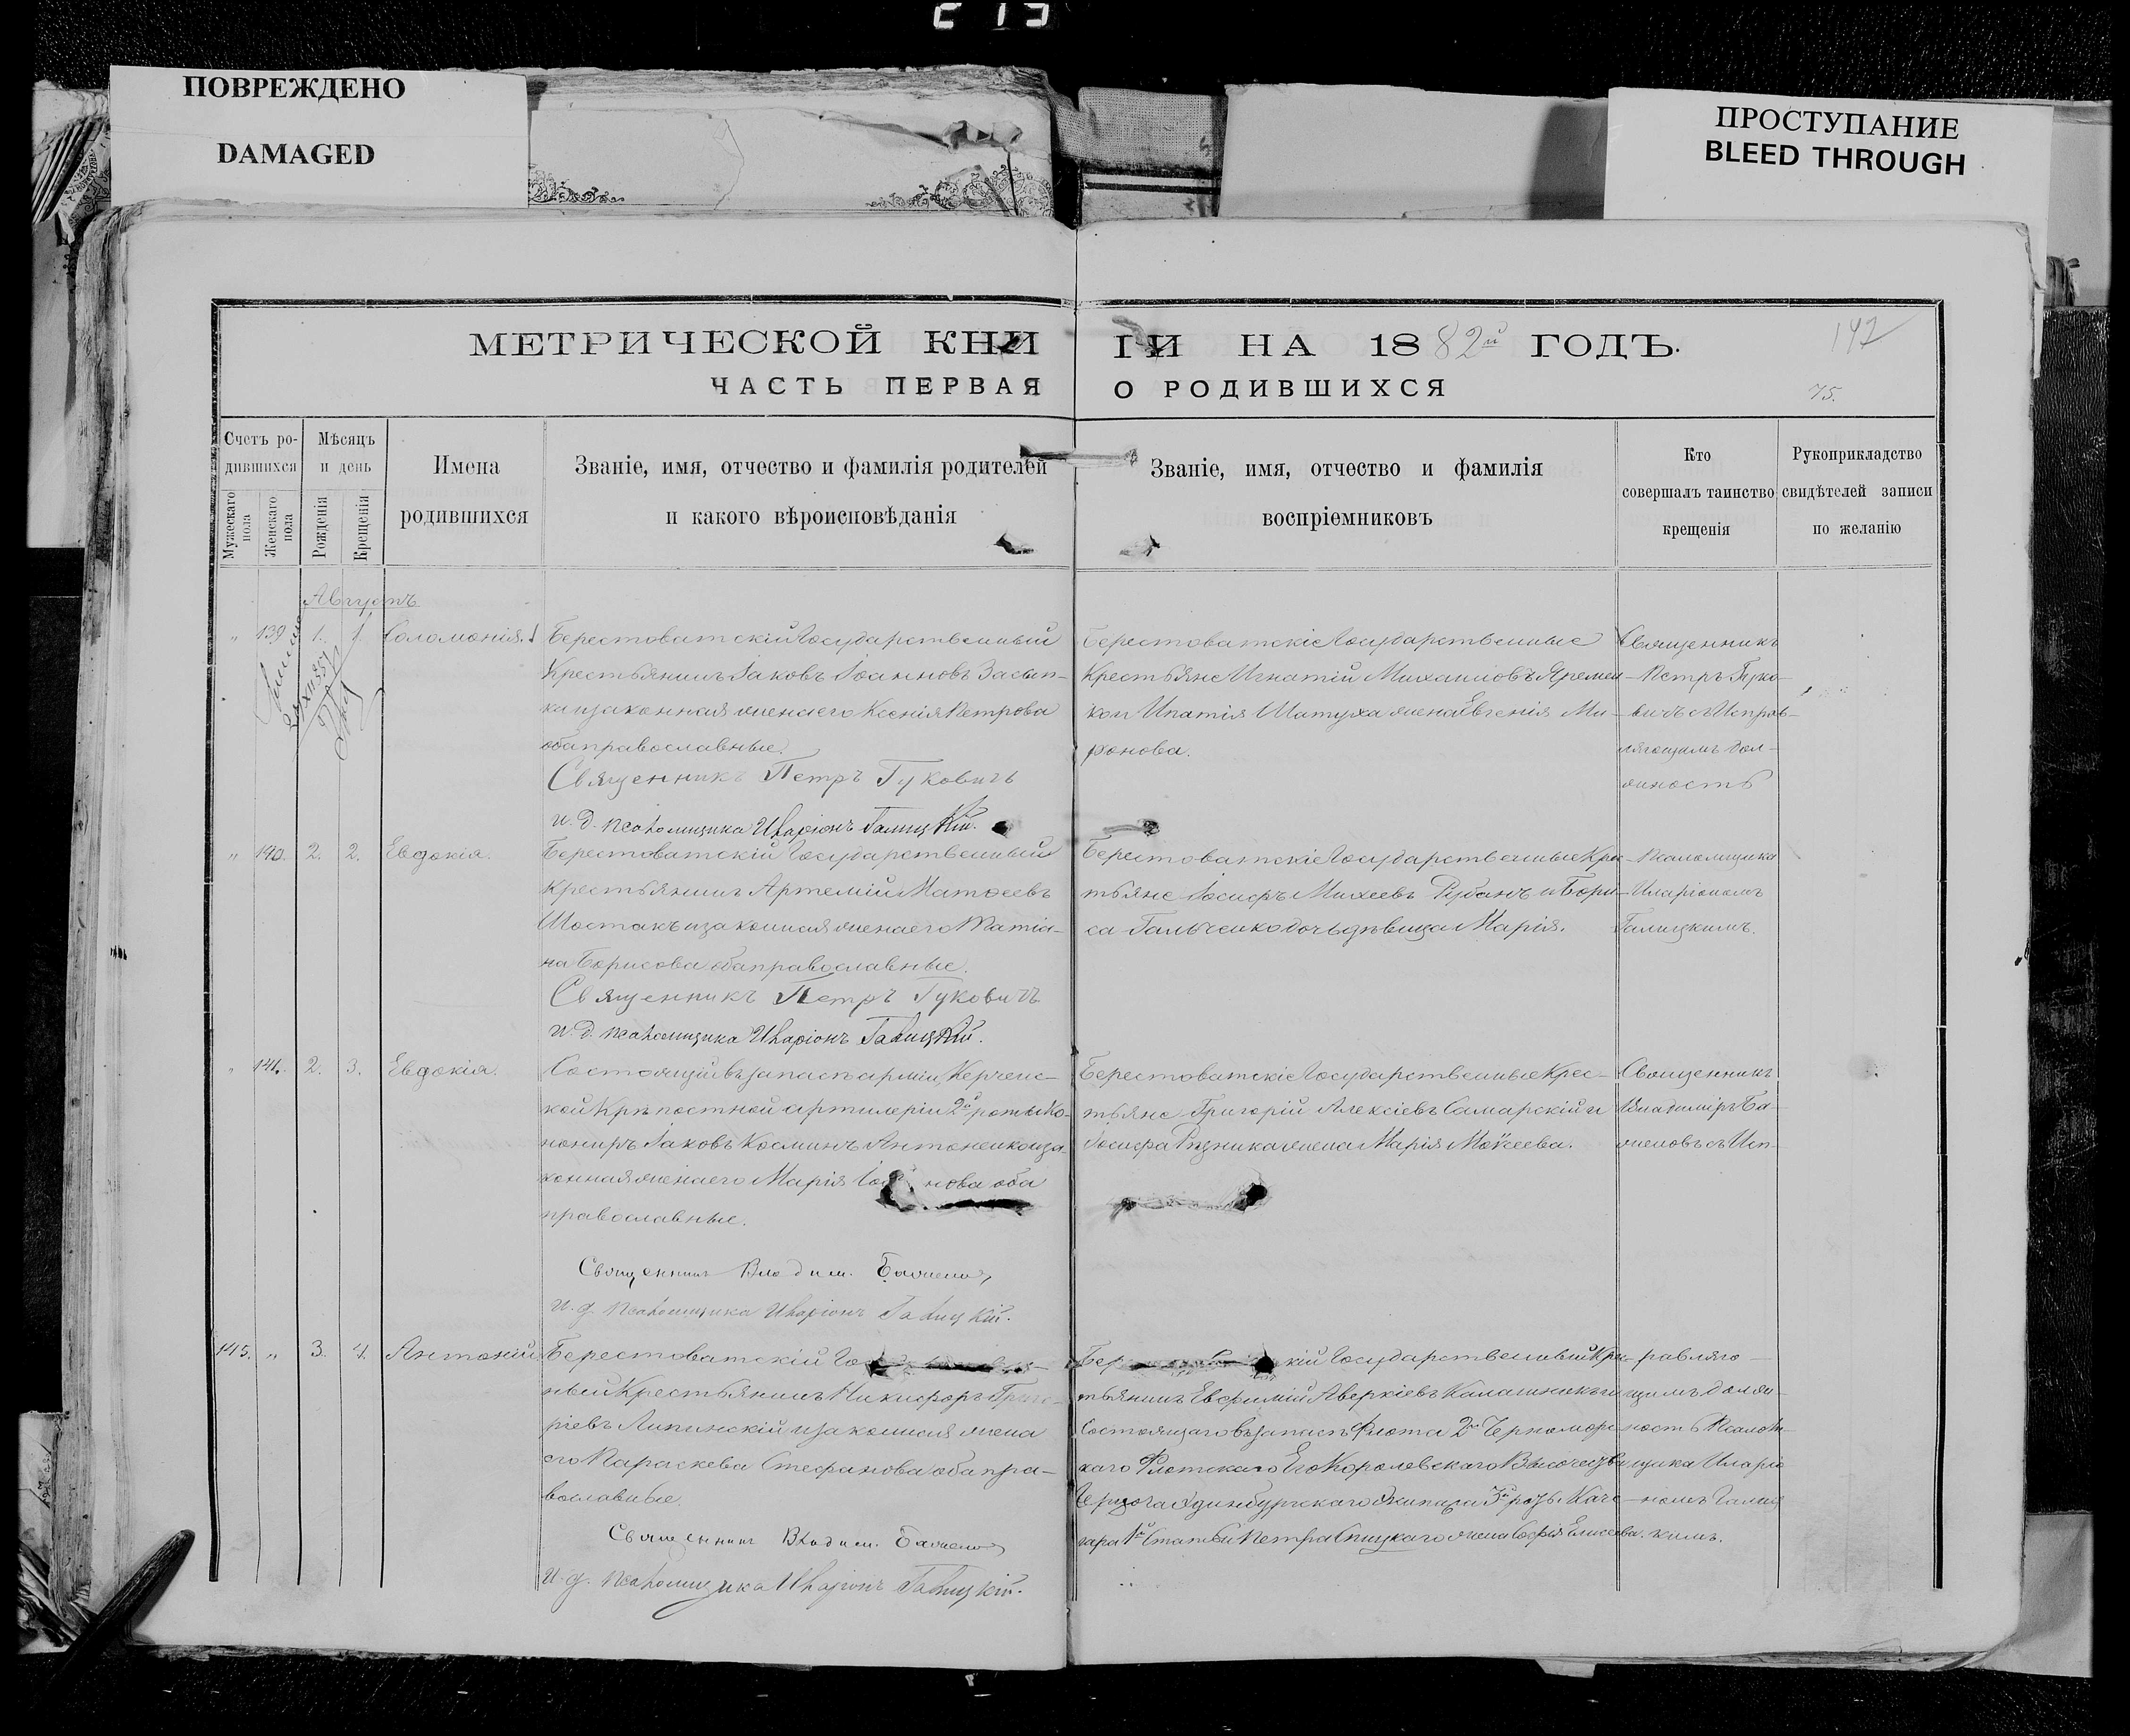 ПОВРЕЖДЕНО
DAMAGED
ПРОСТУПАНИЕ
BLEED THROUGH
МЕТРИЧЕСКОЙ КНИ ГИ НА 1882й ГОДЪ.
147
ЧАСТЬ ПЕРВАЯ О РОДИВШИХСЯ
75.
Счетъ родившихся
Мужескаго пола
Женскаго пола
Мѣсяцъ и день
Рожденія
Крещенія
Имена
родившихся
Званіе, имя, отчество и фамилія родителей
и какого вѣроисповѣданія
Званіе, имя, отчество и фамилія
воспріемниковъ
Кто
совершалъ таинство
крещенія
Рукоприкладство
свидѣтелей записи
по желанію
Августъ
" 139 1. 1. Соломонія.
Берестоватскій Государственный
Крестьянинъ Іаковъ Іоанновъ Засып-
ка и законная жена его Ксенія Петрова
оба православные.
Священникъ Петръ Гуковичъ
и. д. псаломщика Иларіонъ Галицкій.
Берестоватскіе Государственные
Крестьяне Игнатій Михаиловъ Яремен-
ко и Ипатія Шатуха жена Евгенія Ми-
ронова.
Священникъ
Петръ Гуко-
вичъ съ Исправ-
ляющимъ дол-
жность
" 140. 2. 2. Евдокія.
Берестоватскій Государственный
Крестьянинъ Артемій Матѳеевъ
Шостакъ и законная жена его Татіа-
на Борисова оба православные.
Священникъ Петръ Гуковичъ
и. д. псаломщика Иларіонъ Галицкій.
Берестоватскіе Государственные Крес-
тьяне Іосифъ Михеевъ Рубанъ и Бори-
са Гальченко дочь дѣвица Марія.
Псаломщика
Иларіономъ
Галицкимъ.
" 141. 2. 3. Евдокія.
Состоящій въ запасѣ арміи Керченс-
кой Крѣпостной артилеріи 2й роты Ко-
нониръ Іаковъ Косминъ Антоненко и за-
конная жена его Марія нова оба
православные.
Священникъ Владим. Баженовъ
и. д. псаломщика Иларіонъ Галицкій.
Берестоватскіе Государственные Крес-
тьяне Григорій Алексіевъ Самарскій и
Іосифа Рѣзника жена Марія Моѵсеева.
Священникъ
Владиміръ Ба-
женовъ съ Исп-
145. " 3. 4. Антоній
Берестоватскій
ный Крестьянинъ Никифоръ Григо-
ріевъ Липинскій и законная жена
его Параскева Стефанова оба пра-
вославные.
Священникъ Владим. Баженовъ
и. д. псаломщика Иларіонъ Галицкій.
Бер кій Государственный Крес-
тьянинъ Евфимій Аверкіевъ Калашникъ и
Состоящаго въ запасѣ Флота 2го Черноморс-
каго Флотскаго Его Королевскаго Высочества
Герцога Эдинбургскаго Экипажа 3й роты Коче-
гара 1й Статьи Петра Спицкаго жена Софія Елисеева.
равляю-
щимъ долж-
ность Псалом-
щика Иларіо
номъ Галиц
кимъ.